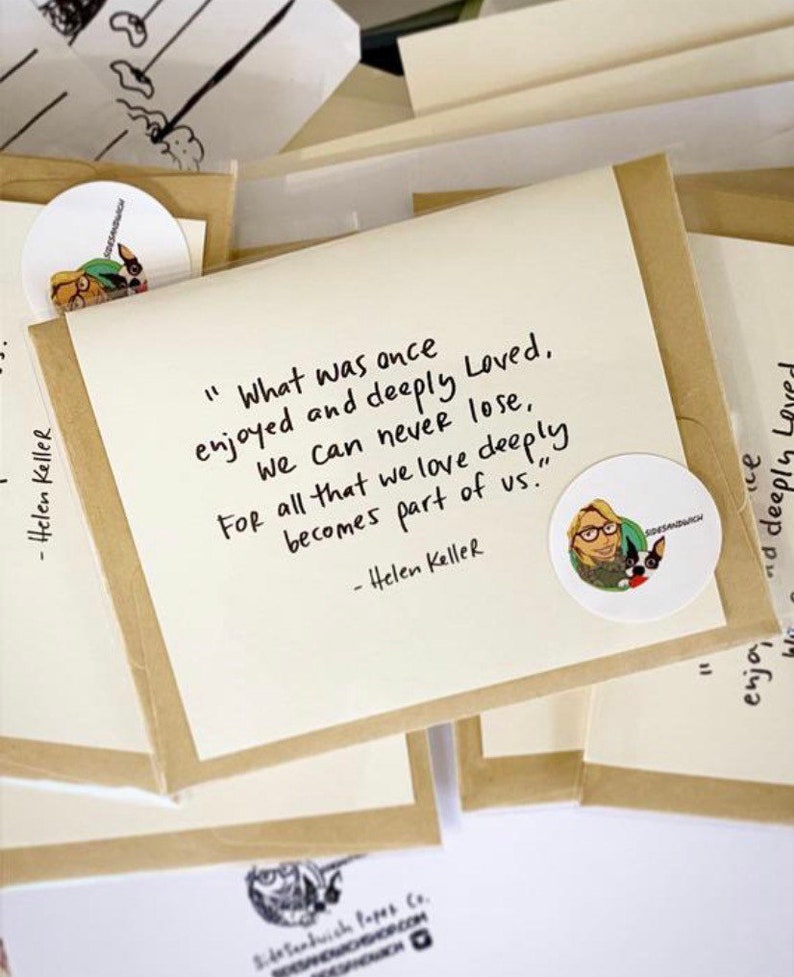 " What was once
enjoyed and deeply Loved,
we can never lose,
FOR all that we love deeply
becomes part of us."
- Helen Keller
SIDESANDWICH
SIDESANDWICH
- Helen Keller
deeply Loved
enjo
"
SideSandwich Paper Co.
SIDESANDWICHSHOP.COM
SIDESANDWICH